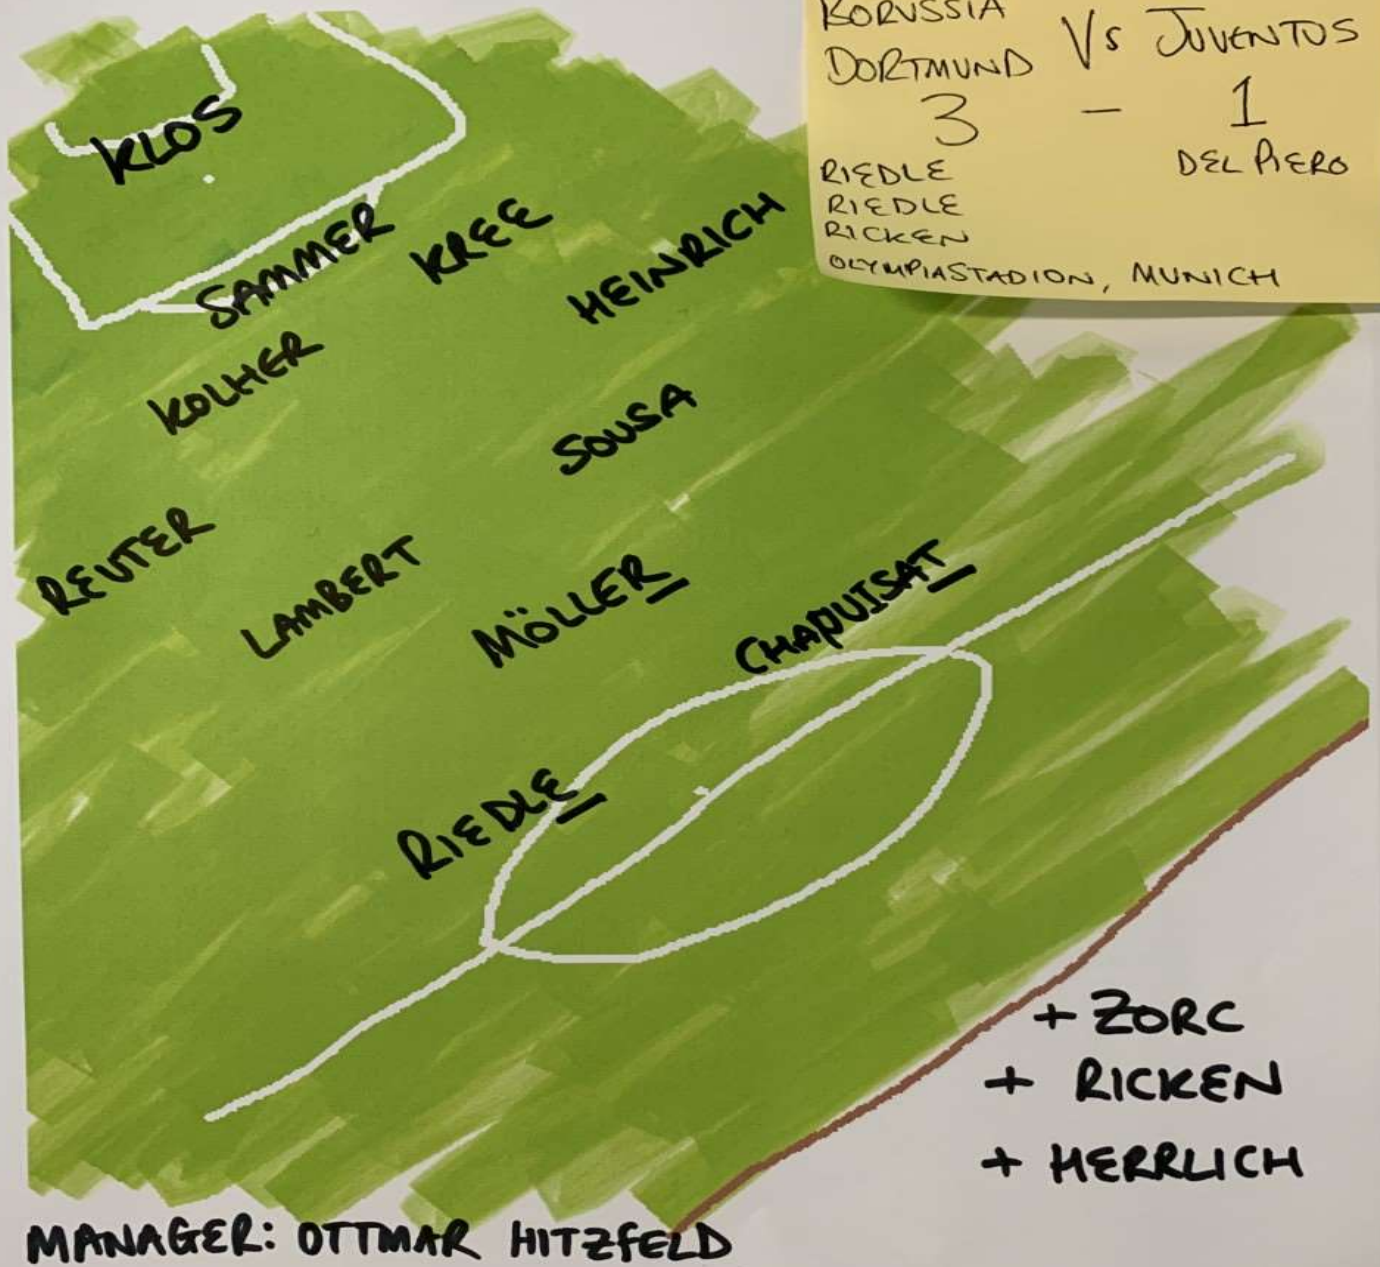 BORUSSIA
DORTMUND Vs JUVENTUS
3 - 1
RIEDLE DEL PIERO
RIEDLE
RICKEN
OLYMPIASTADION, MUNICH
KLOS
SAMMER
KREE
HEINRICH
KOLHER
SOUSA
REUTER
LAMBERT
MÖLLER
CHAPUISAT
RIEDLE
+ ZORC
+ RICKEN
+ HERRLICH
MANAGER: OTTMAR HITZFELD